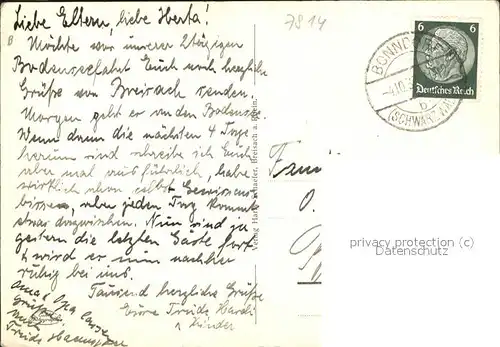 Liebe Eltern, liebe Herta!
Möchte vor unserer 2tägigen
Bodenseefahrt Euch noch herzliche
Grüße von Breisach senden.
Morgen geht es an den Bodensee.
Wenn dann die nächsten 4 Tage
herum sind schreibe ich Euch
aber mal ausführlich, habe
wirklich schon selbst Gewissens-
bisse, aber jeden Tag kommt
etwas dazwischen. Nun sind ja
gestern die letzten Gäste fort
& wird es nun nachher
ruhig bei uns.
Tausend herzliche Grüße
Eure Trude Hardi
Kinder
Oma & Opa lassen
grüßen
Trude
7814
6 6
Deutsches Reich
BONNDORF
b
(SCHWARZW)
Verlag Hans Breisach a. Rhein.
privacy protection (c)
Datenschutz